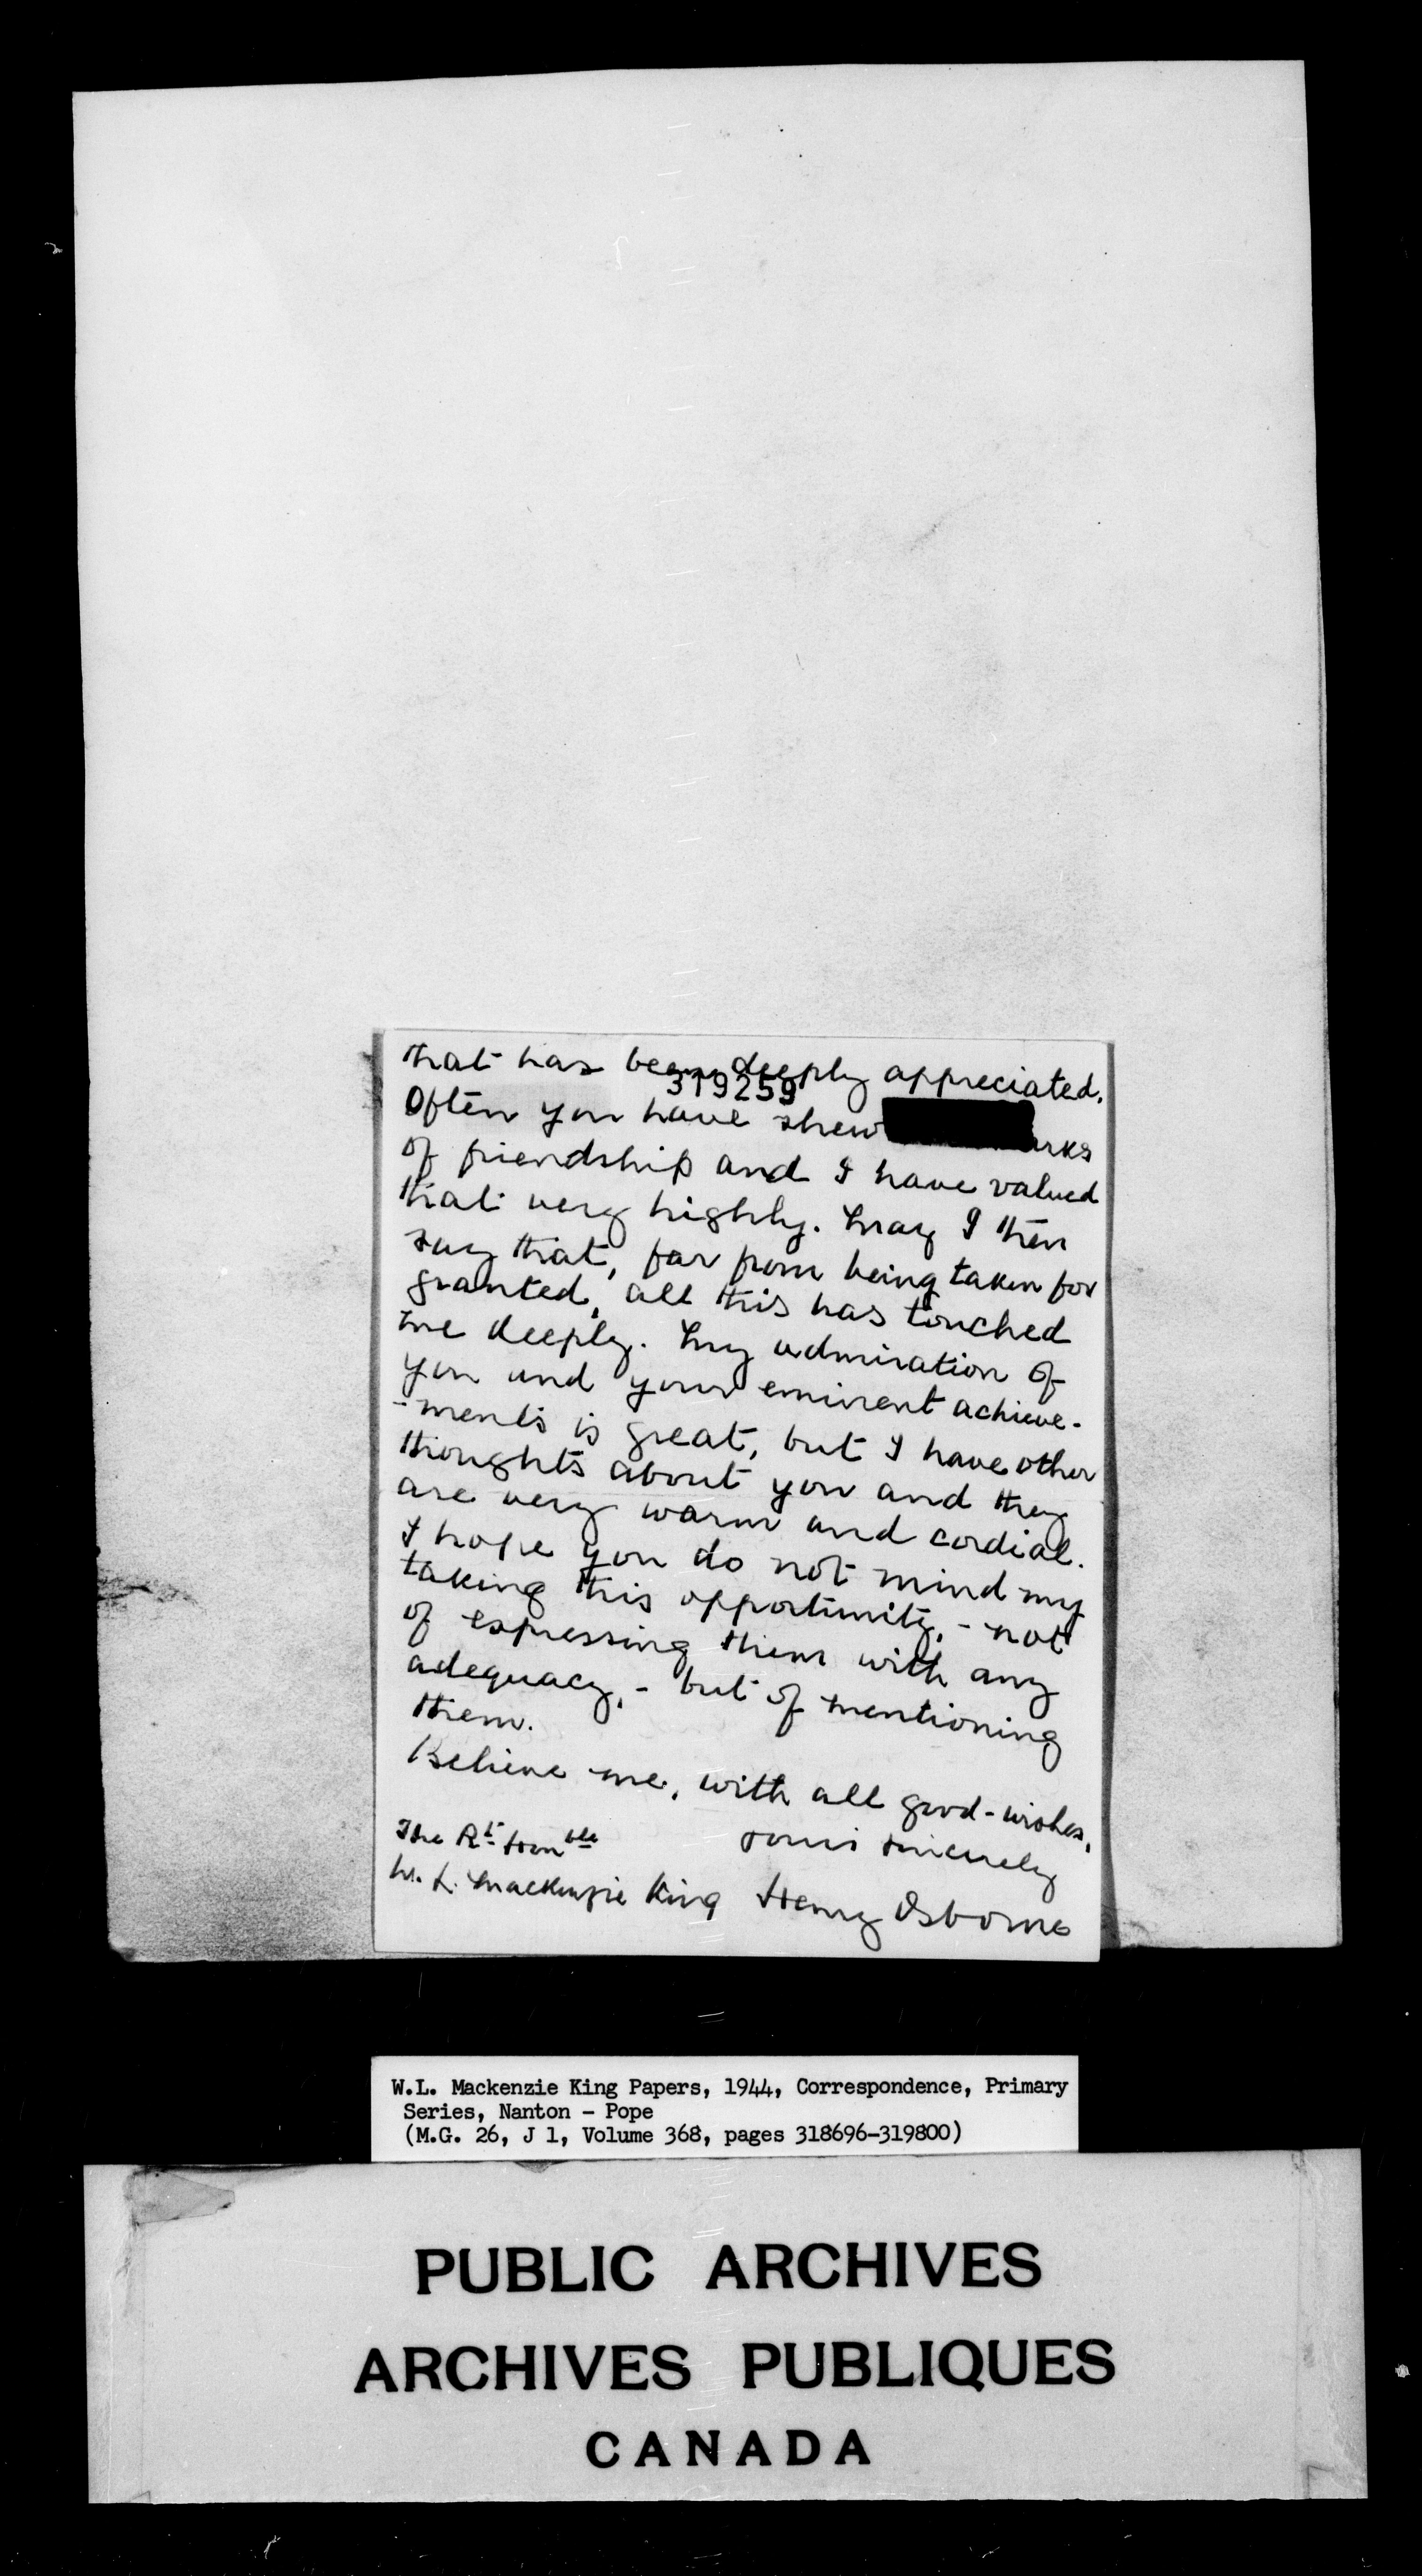 that has been deeply appreciated.
319259
Often you have shew
rks
of friendship and I have valued
that very highly. May I then
say that, far from being taken for
granted, all this has touched
me deeply. My admiration of
you and your eminent achieve-
-ments is great, but I have other
thoughts about you and they
are very warm and cordial.
I hope you do not mind my
taking this opportunity, - not
of expressing them with any
adequacy, - but of mentioning
them.
Believe me, with all good-wishes,
Yours sincerely
The Rt Honble
W. L. Mackenzie King Henry Osborne
W.L. Mackenzie King Papers, 1944, Correspondence, Primary
Series, Nanton - Pope
(M.G. 26, J 1, Volume 368, pages 318696-319800)
PUBLIC ARCHIVES
ARCHIVES PUBLIQUES
CANADA